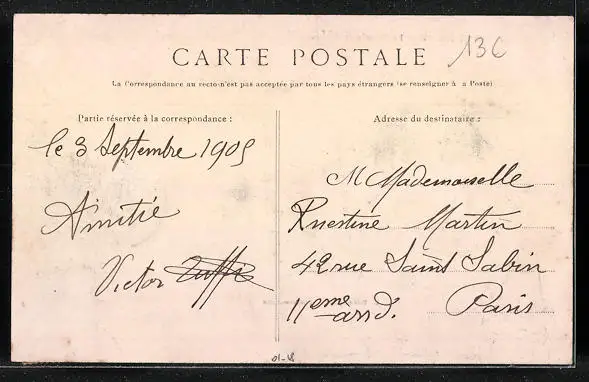 CARTE POSTALE
13C
La Correspondance au recto n'est pas acceptée par tous les pays étrangers (se renseigner à la Poste)
Partie réservée à la correspondance :
le 3 Septembre 1905
Amitié
Victor
Adresse du destinataire :
M Mademoiselle
Ernestine Martin
42 rue Saint Sabin
11eme arrd. Paris
01-18